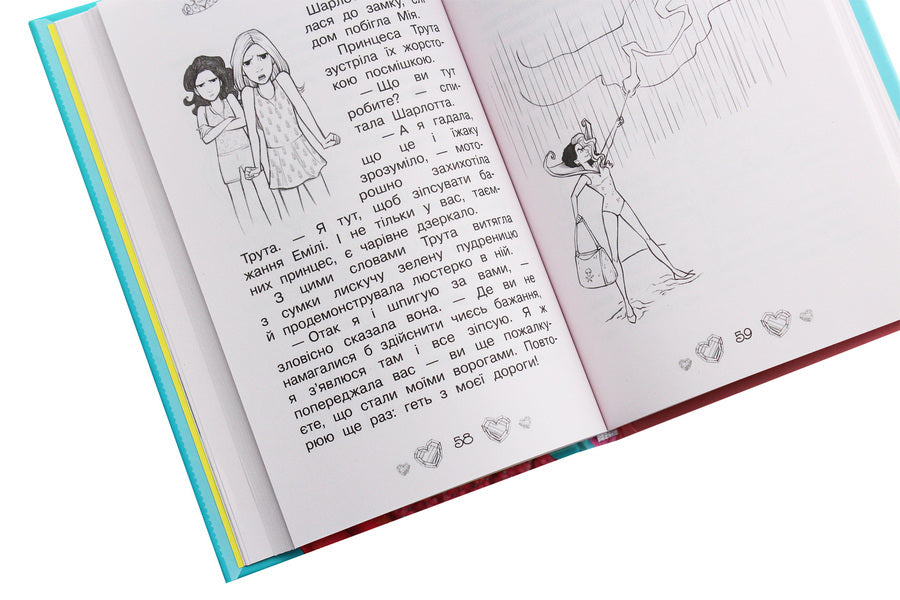 Шарлот
лася до замку, слі
дом побігла Мія.
Принцеса Трута
зустріла їх жорсто-
кою посмішкою.
— Що ви тут
робите? — спи-
тала Шарлотта.
— А я гадала,
що це і їжаку
зрозуміло, — мото-
рошно захихотіла
Трута. — Я тут, щоб зіпсувати ба-
жання Емілі. І не тільки у вас, таєм-
них принцес, є чарівне дзеркало.
З цими словами Трута витягла
з сумки лискучу зелену пудреницю
й продемонструвала люстерко в ній.
— Отак я і шпигую за вами, —
зловісно сказала вона. — Де ви не
намагалися б здійснити чиєсь бажання,
я з'явлюся там і все зіпсую. Я ж
попереджала вас — ви ще пожалку-
єте, що стали моїми ворогами. Повто-
рюю ще раз: геть з моєї дороги!
58
59